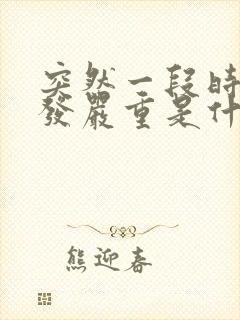 突然一段時
發嚴重是什
熊迎春